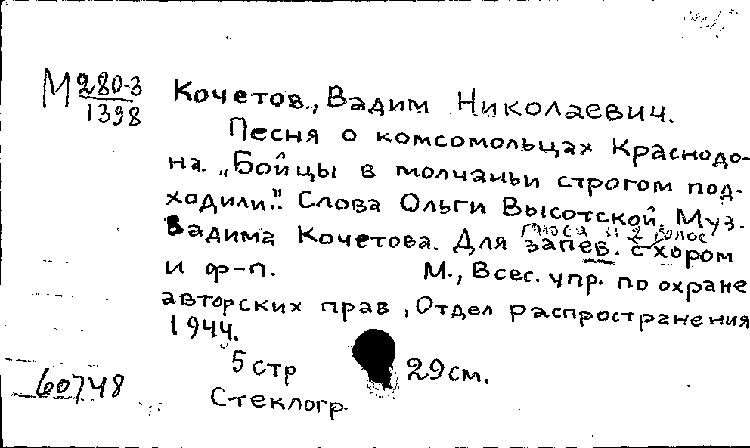 М 280-3
1398
Кочетов, Вадим Николаевич.
Песня о комсомольцах Краснодо-
на. „Бойцы в молчаньи строгом под-
ходили." Слова Ольги Высотской. Муз.
Вадима Кочетова. Для запев. с хором
и ф-п. М., Всес. упр. по охране
авторских прав, Отдел распространения
1944.
5 стр 29 см.
60748
Стеклогр.